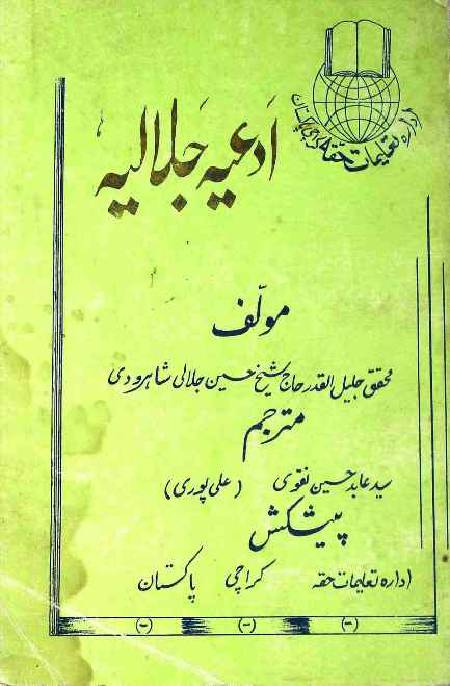 ادارہ تعلیمات حقہ کراچی پاکستان
اَدعیہ جَلالیہ
مولّف
محقق جلیل القدر حاج شیخ حسین جلالی شاہرودی
مترجم
سید عابد حسین نقوی (علی پوری)
پیشکش
ادارہ تعلیمات حقہ کراچی پاکستان